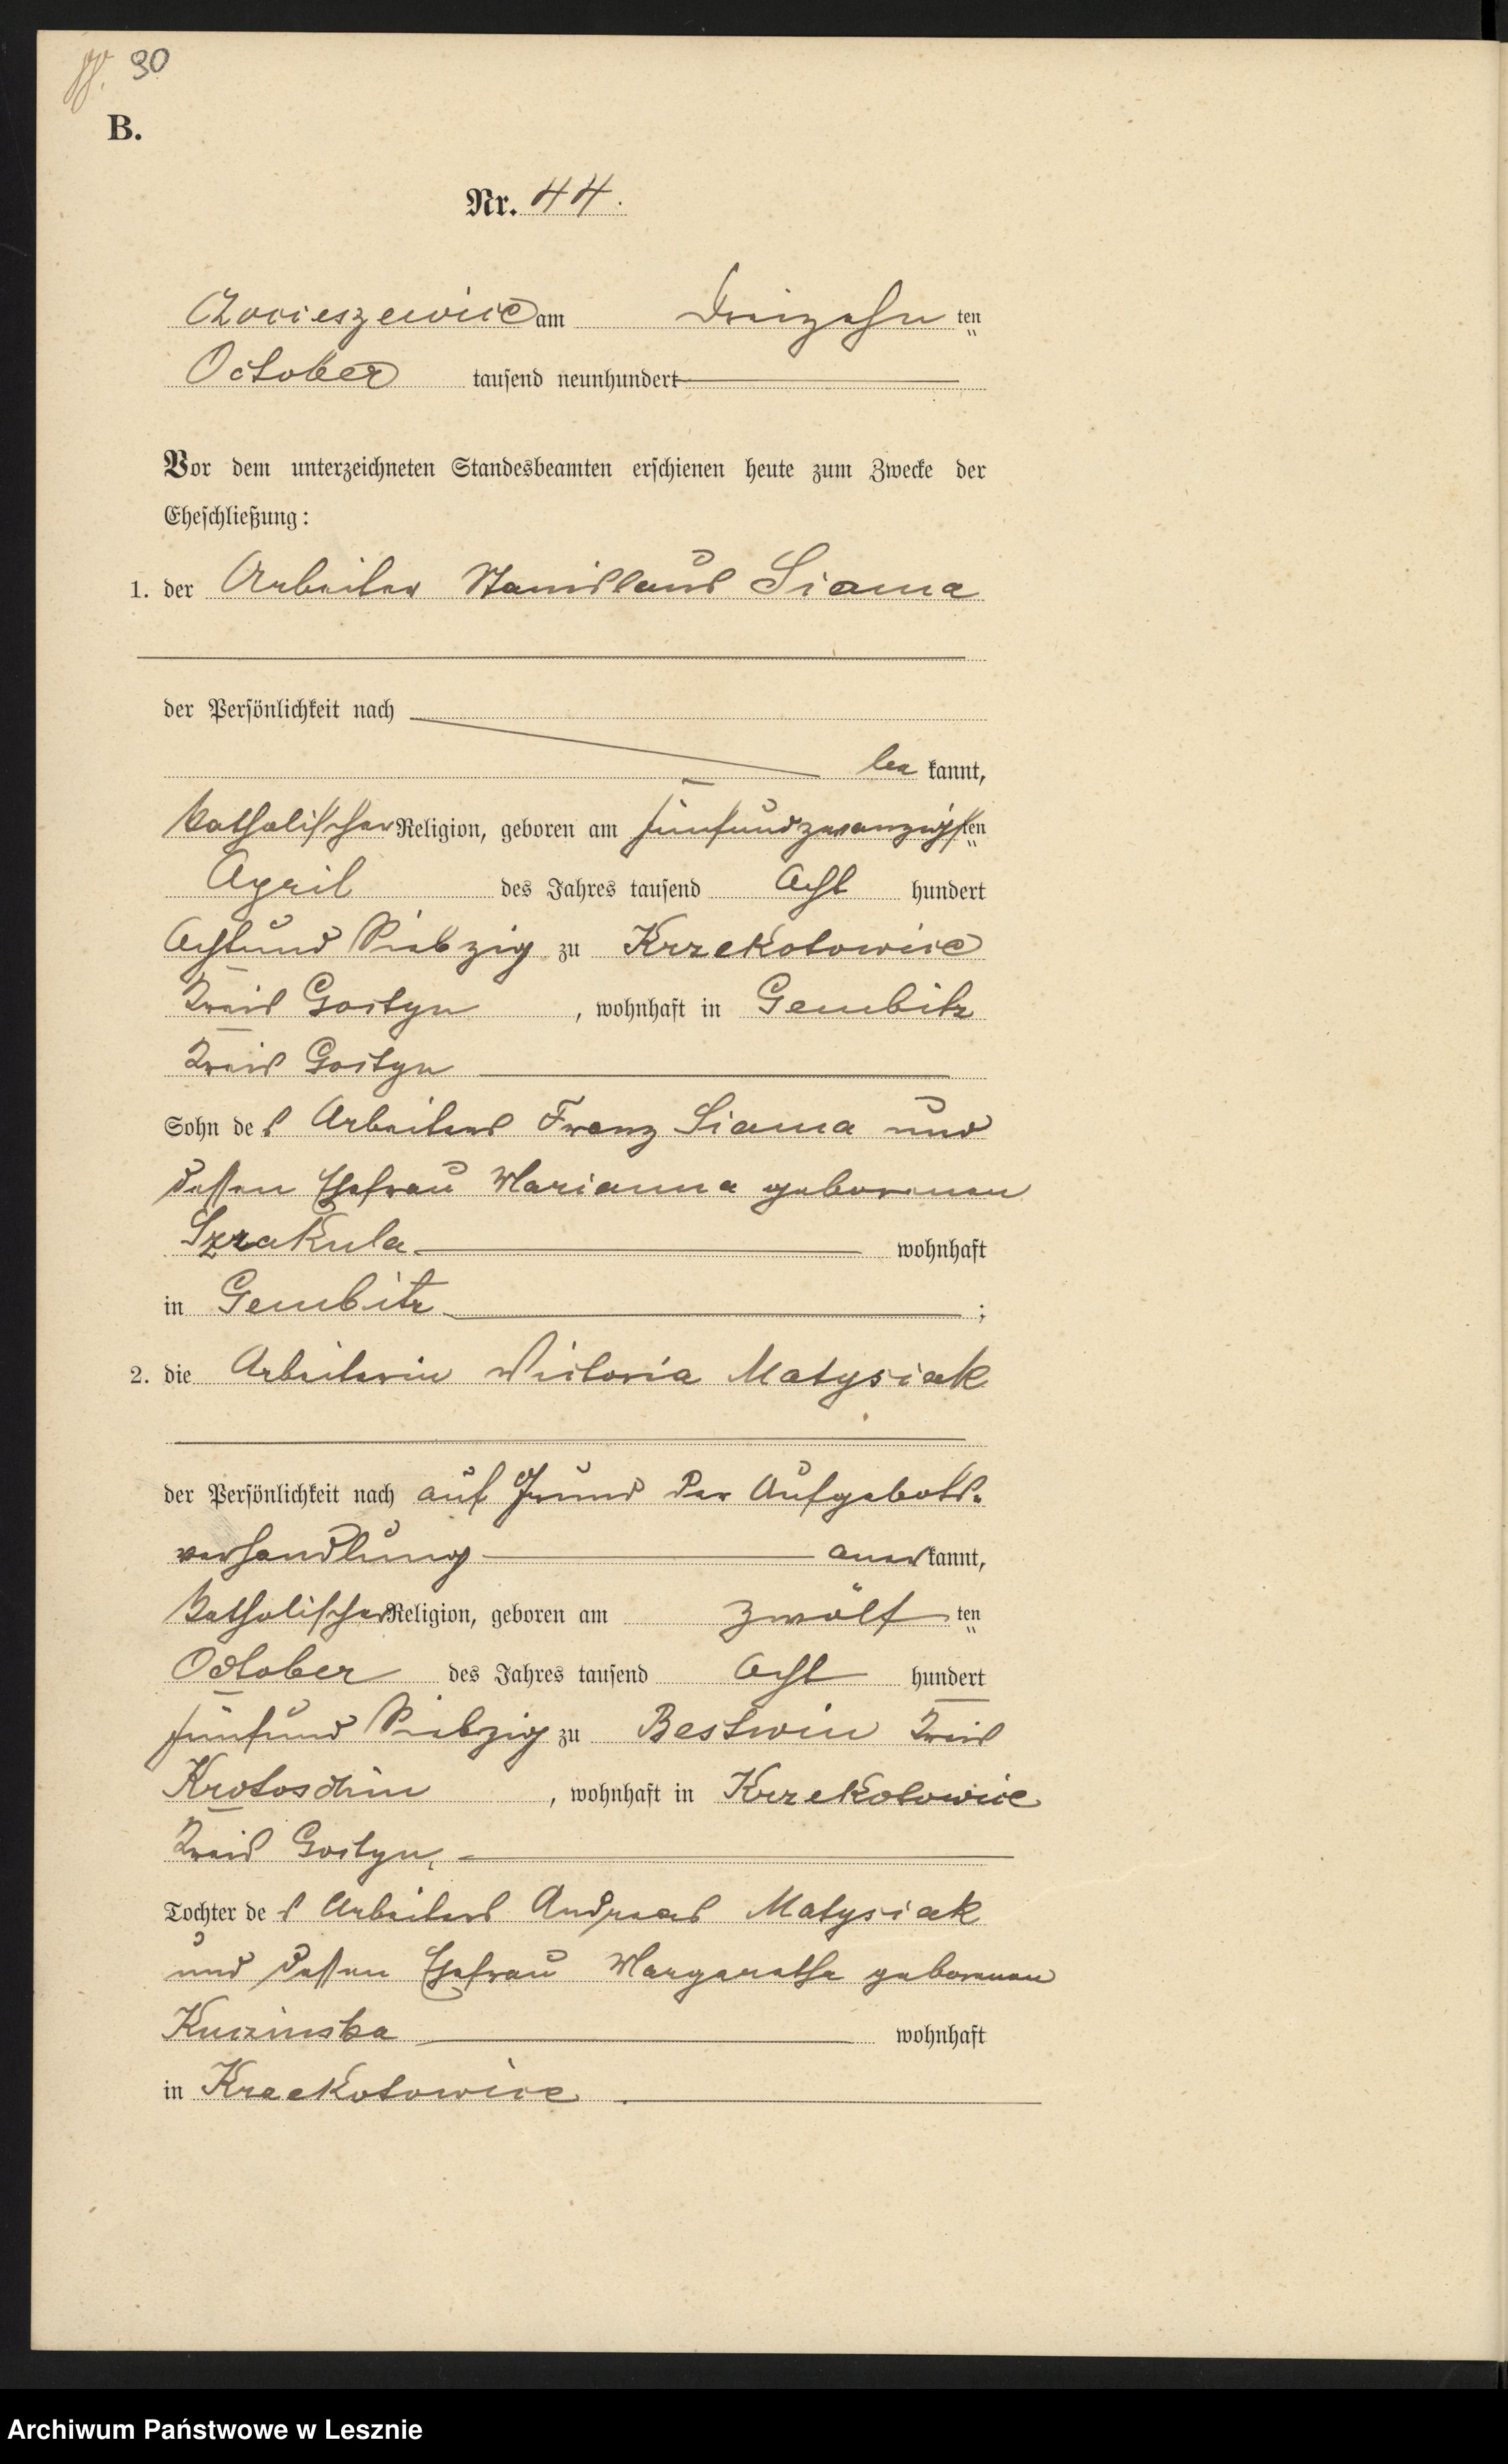 90
B.
Nr. 44.
am Dreizehn ten
October tausend neunhundert
Vor dem unterzeichneten Standesbeamten erschienen heute zum Zwecke der
Eheschließung:
1. der Arbeiter Stanislaus Siama
der Persönlichkeit nach
be kannt,
katholischer Religion, geboren am fünfundzwanzigsten
April des Jahres tausend acht hundert
achtund siebzig zu Krzekotowice
Kreis Gostyn , wohnhaft in Gembitz
Kreis Gostyn
Sohn des Arbeiters Franz Siama und
dessen Ehefrau Marianna geborenen
wohnhaft
in Gembitz ;
2. die Arbeiterin Victoria Matysiak
der Persönlichkeit nach auf Grund der Aufgebots-
verhandlung anerkannt,
katholischer Religion, geboren am zwölf ten
October des Jahres tausend acht hundert
fünfund siebzig zu Bestwin Kreis
Krotoschin , wohnhaft in Krzekotowice
Kreis Gostyn,
Tochter des Arbeiters Andreas Matysiak
und dessen Ehefrau Margarethe geborenen
Kuczinska wohnhaft
in Krzekotowice
Archiwum Państwowe w Lesznie